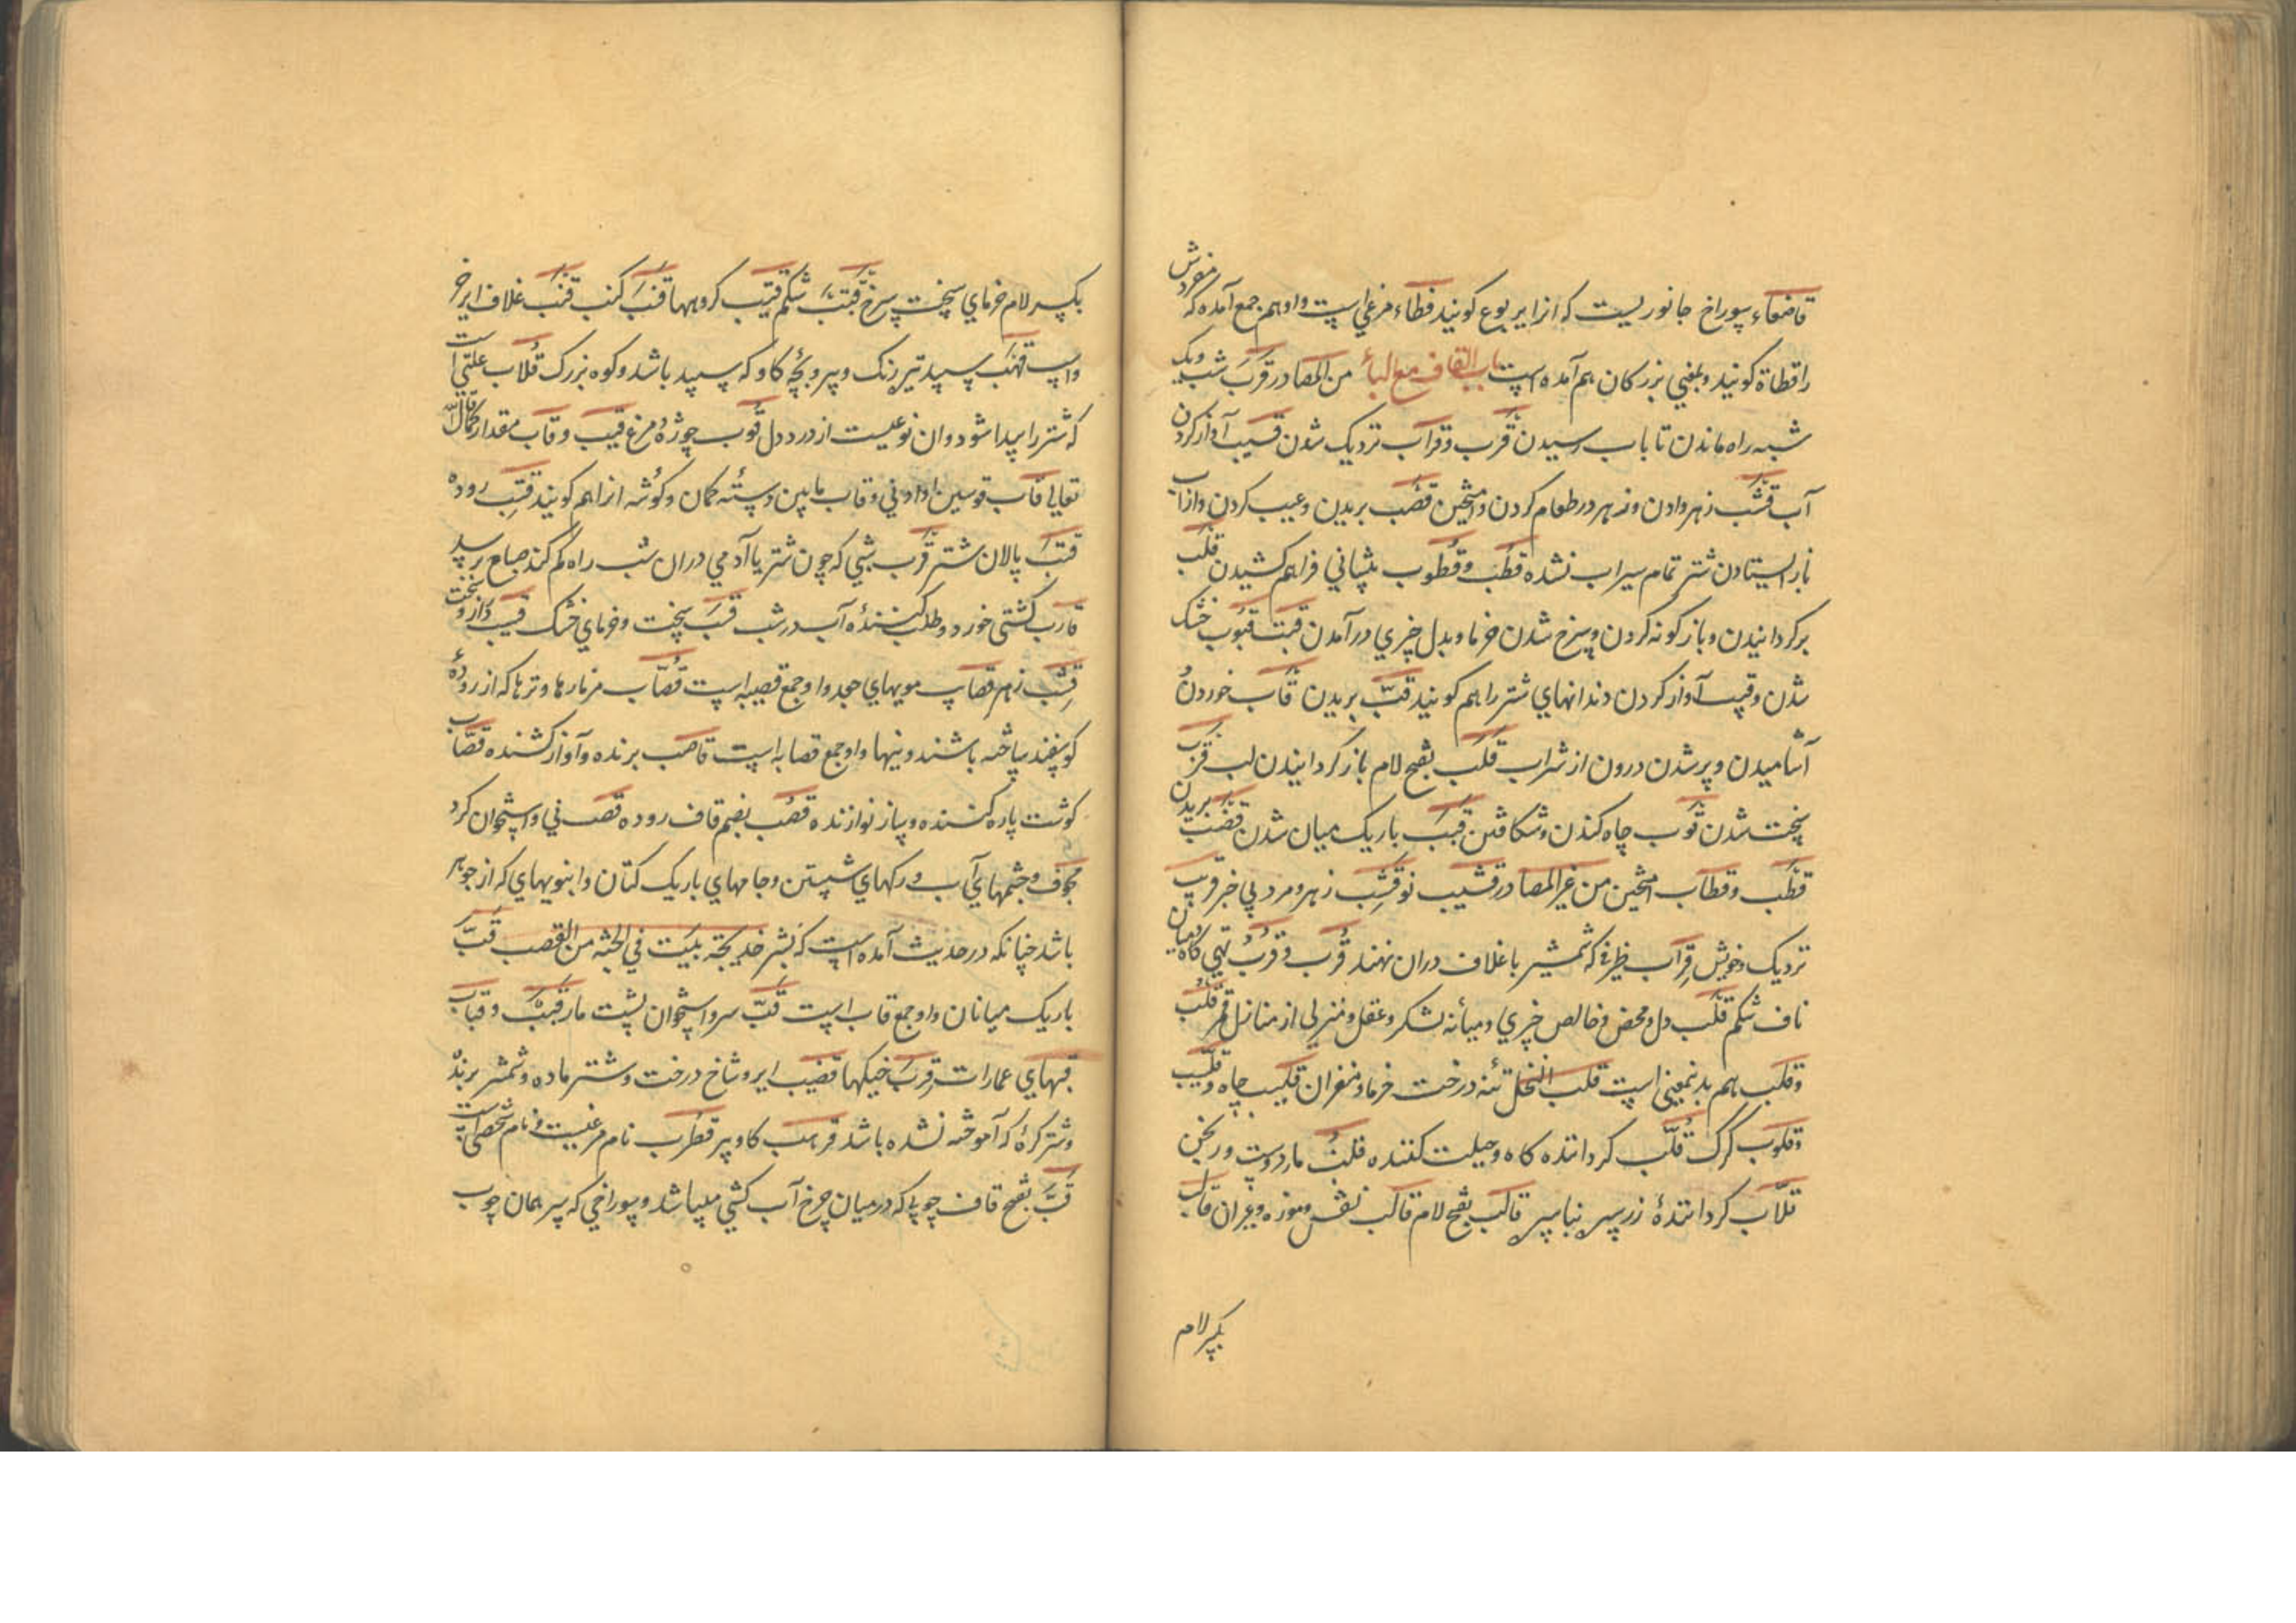 قاصعاء سوراخ جانوریست که انرا یربوع کویند قطاء مرغی است واو اسم جمع آمده که مفردش
را قطاة کویند و بمعنی بزرکان هم آمده است باب القاف مع الباء من المصادر قرب شب ویک
شبه راه ماندن تا باب رسیدن قرب وقراب نزدیک شدن قسیب آواز کردن
آب قشب زهر دادن و زهر در طعام کردن و آمیختن قصب بریدن و عیب کردن و از آب
باز ایستادن شتر تمام سیراب نشده قطب و قطوب پیشانی فراهم کشیدن قلب
برکردانیدن و باز کونه کردن و سرخ شدن خرما و بدل چیزی در آمدن قبت قبوب خشک
شدن و قبیب آواز کردن دندانهای شتر را هم کویند قب بریدن قاب خوردن
آشامیدن و پر شدن درون از شراب قلب بفتح لام باز کردانیدن لب قزب
سخت شدن قوب چاه کندن و شکافتن قبب باریک میان شدن قضب بریدن
قطب وقطاب آمیختن من غیر المصادر قشیب نو قشب زهر و مرد بی خیر قریب
نزدیک و خویش قراب ظرفی که شمشیر با غلاف دران نهند قرب و قرب تهی کاه ومیان
ناف شکم قلب دل و محض و خالص چیزی و میانه لشکر و عقل و منزلی از منازل قمر قلب
وقلب هم بدینمعنی است قلب النخل تنه درخت خرما و مغز ان قلیب چاه وقلیب
وقلوب کرک قلب کرداننده کاه و حیلت کننده قلب مار و دست ورنجن
قلاب کرداننده زر سره بناسره قالب بفتح لام قالب نفس و موزه و غیر ان قالب
بکسر لام
بکسر لام خرمای سخت سرخ قتب شکم قنیب کروهها قنب کنب قنب غلاف ایر خر
واسب قهب سپید تیره رنک و پیر و بچه کاو که سپید باشد و کوه بزرک قلاب علتی است
که شتر را پیدا شود و ان نوعیست از درد دل قوب چوزه مرغ قیب وقاب مقدار کما قال الله
تعالی قاب قوسین او ادنی وقاب مابین دسته کمان و کوشه انرا هم کویند قتب روده
قتب پالان شتر قرب شبی که چون شتر یا آدمی دران شب راه کم کند صباح برسد
قارب کشتی خورد و طلب کننده آب در شب قسب سخت و خرمای خشک قسیب دراز و سخت
قشب زهر قصاب مویهای مجد واو جمع قصیبه است قصاب مزمارها و ترها که از روده
کوسفند ساخته باشند و نیها واو جمع قصابه است قاصب برنده و آواز کشنده قصاب
کوشت پاره کننده و ساز نوازنده قصب بضم قاف روده قصب نی و استخوان کرد
مجوف و چشمهای آب و رکهای شستن و جامهای باریک کتان و انبویهای که از جوهر
باشد چنانکه در حدیث آمده است که بشر خدیجة ببیت فی الجنة من القصب قب
باریک میانان واو جمع قاب است قب سر و استخوان پشت مار قبب وقباب
قبهای عمارات قرب خیکها قضیب ایر و شاخ درخت و شتر ماده و شمشیر برنده
وشتر کره که آموخته نشده باشد قرهب کاو پیر قطرب نام مرغیست و نام شخصی است
قب بفتح قاف چوبی که در میان چرخ آب کشی میباشد و سوراخی که سر همان چوب